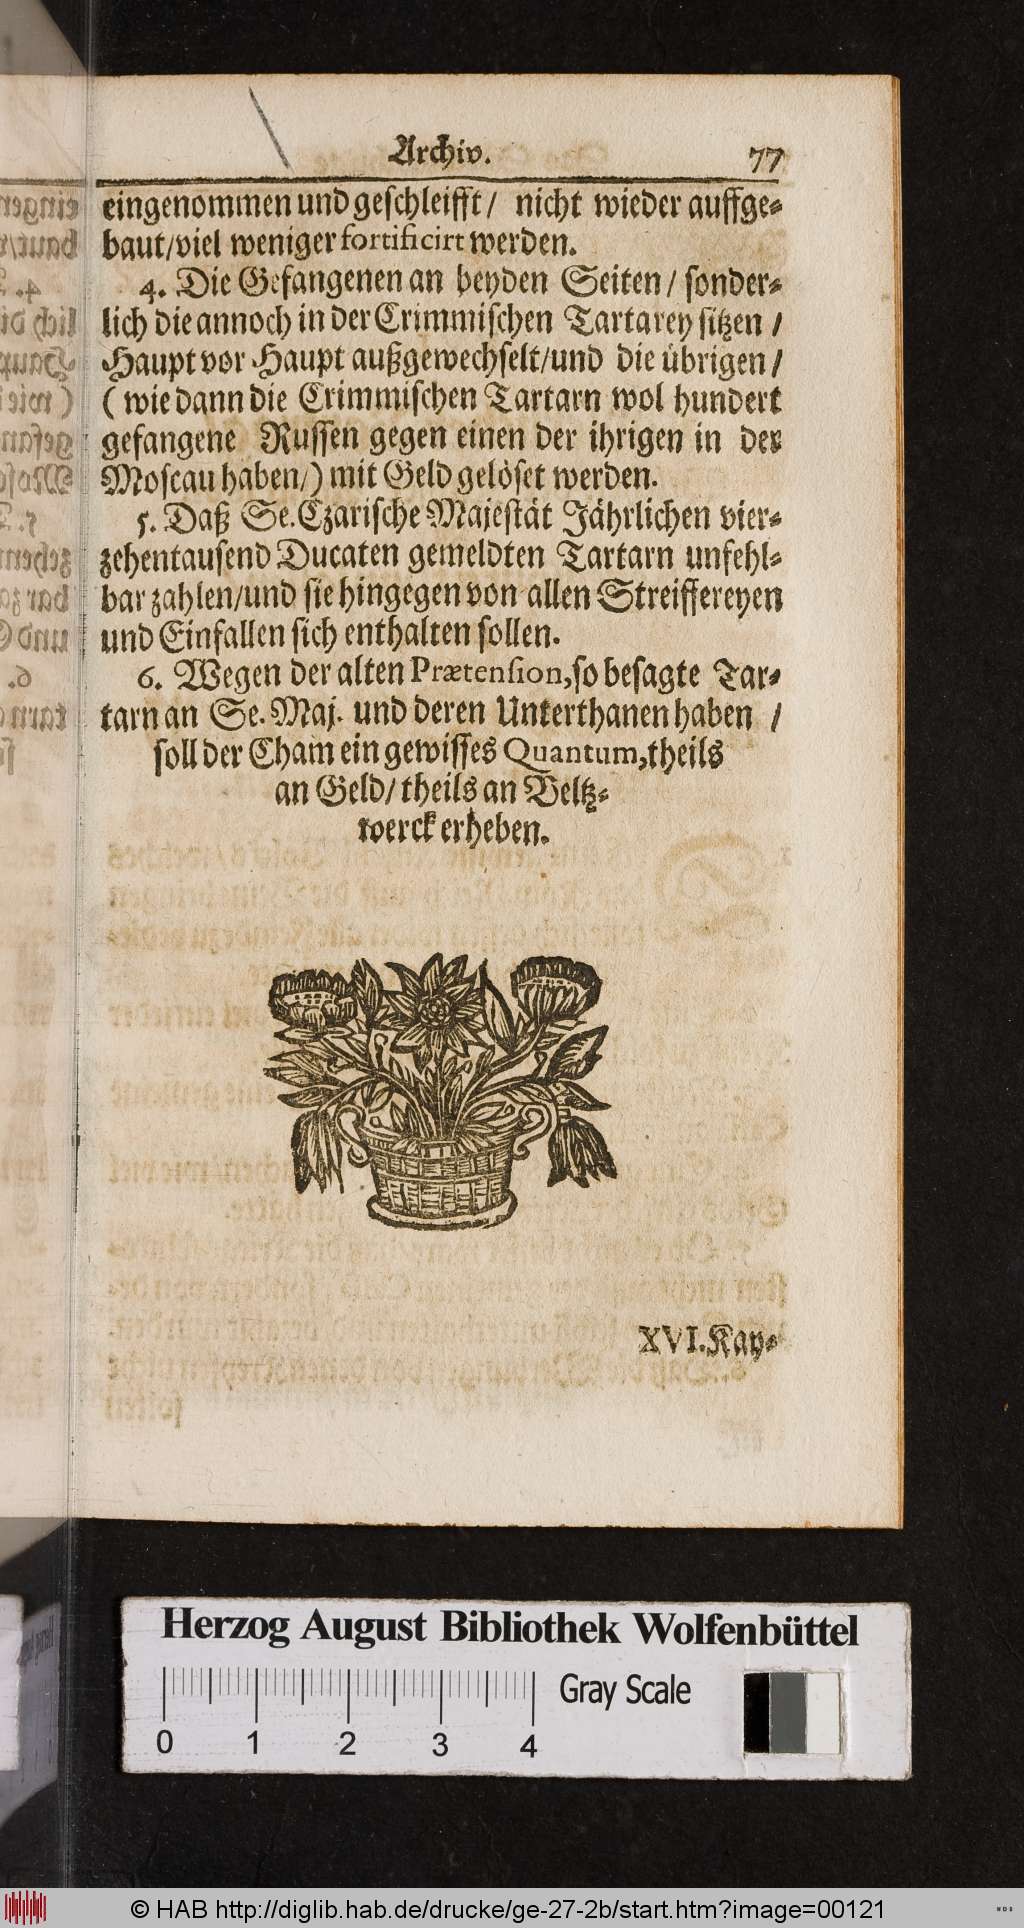 Archiv. 77
eingenommen und geschleifft / nicht wieder auffge-
baut/viel weniger fortificirt werden.
4. Die Gefangenen an beyden Seiten / sonder-
lich die annoch in der Crimmischen Tartarey sitzen /
Haupt vor Haupt außgewechselt/und die übrigen /
( wie dann die Crimmischen Tartarn wol hundert
gefangene Russen gegen einen der ihrigen in der
Moscau haben/) mit Geld gelöset werden.
5. Daß Se. Czarische Majestät Jährlichen vier-
zehentausend Ducaten gemeldten Tartarn unfehl-
bar zahlen/und sie hingegen von allen Streiffereyen
und Einfallen sich enthalten sollen.
6. Wegen der alten Prætension, so besagte Tar-
tarn an Se. Maj. und deren Unterthanen haben /
soll der Cham ein gewisses Quantum, theils
an Geld/ theils an Beltz-
werck erheben.
XVI. Kay-
Herzog August Bibliothek Wolfenbüttel
Gray Scale
0 1 2 3 4
© HAB http://diglib.hab.de/drucke/ge-27-2b/start.htm?image=00121